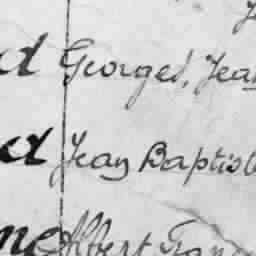 d Georges, Jean
d Jean Baptist
ne Albert Franç